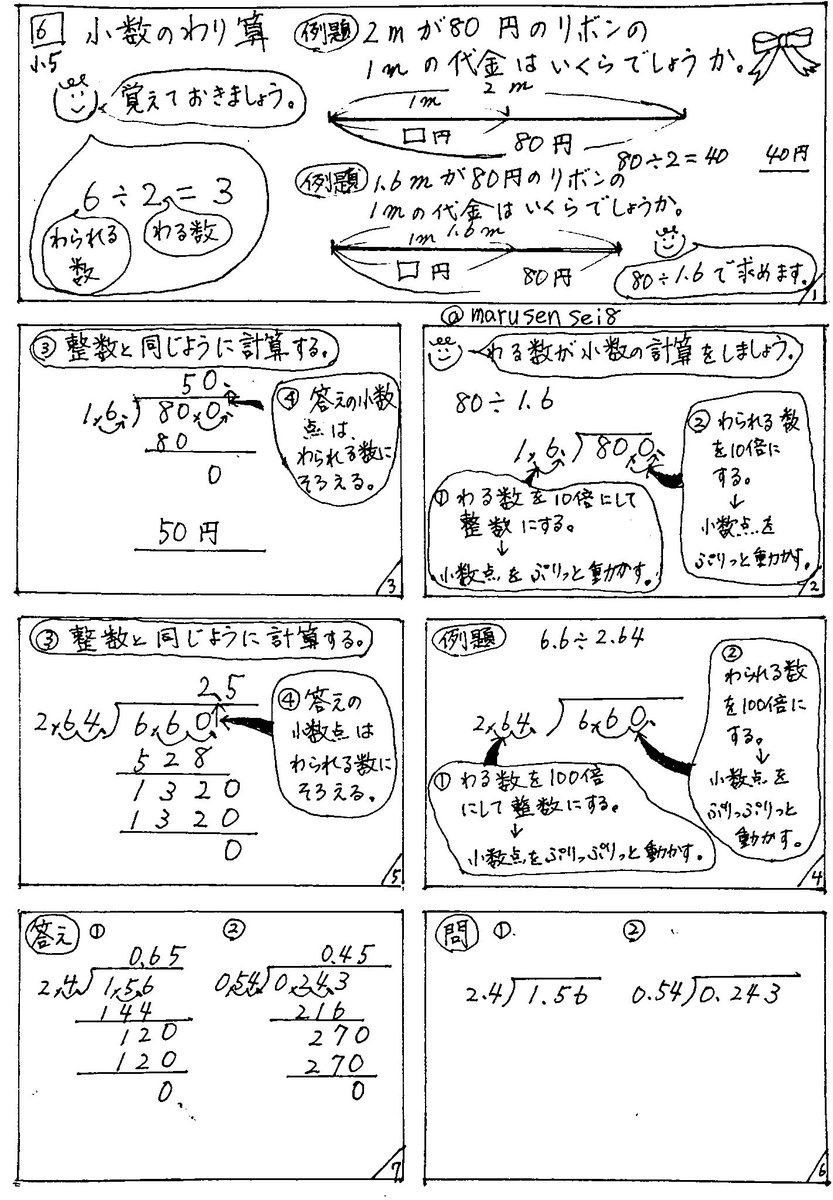 6 小数のわり算
小5
覚えておきましょう。
6÷2=3
わられる数
わる数
例題 2mが80円のリボンの
1mの代金はいくらでしょうか。
2m
1m
□円
80円
80÷2=40 40円
例題 1.6mが80円のリボンの
1mの代金はいくらでしょうか。
1m 1.6m
□円 80円
80÷1.6で求めます。
1
@marusensei8
わる数が小数の計算をしましょう。
80÷1.6
1.6.)80 0.
①わる数を10倍にして
整数にする。
↓
小数点をぷりっと動かす。
②わられる数
を10倍に
する。
↓
小数点を
ぷりっと動かす。
2
③整数と同じように計算する。
50.
1.6.)80.0.
80
0
50円
④答えの小数
点は、
わられる数に
そろえる。
3
例題 6.6÷2.64
2.64.)6.60.
①わる数を100倍
にして整数にする。
↓
小数点をぷりっぷりっと動かす。
②
わられる数
を100倍に
する。
↓
小数点を
ぷりっぷりっと
動かす。
4
③整数と同じように計算する。
2.5
2.64.)6.60.
528
1320
1320
0
④答えの
小数点は
わられる数に
そろえる。
5
問 ① ②
2.4)1.56 0.54)0.243
6
答え ① ②
0.65 0.45
2.4.)1.5.6 0.54.)0.24.3
144 216
120 270
120 270
0 0
7